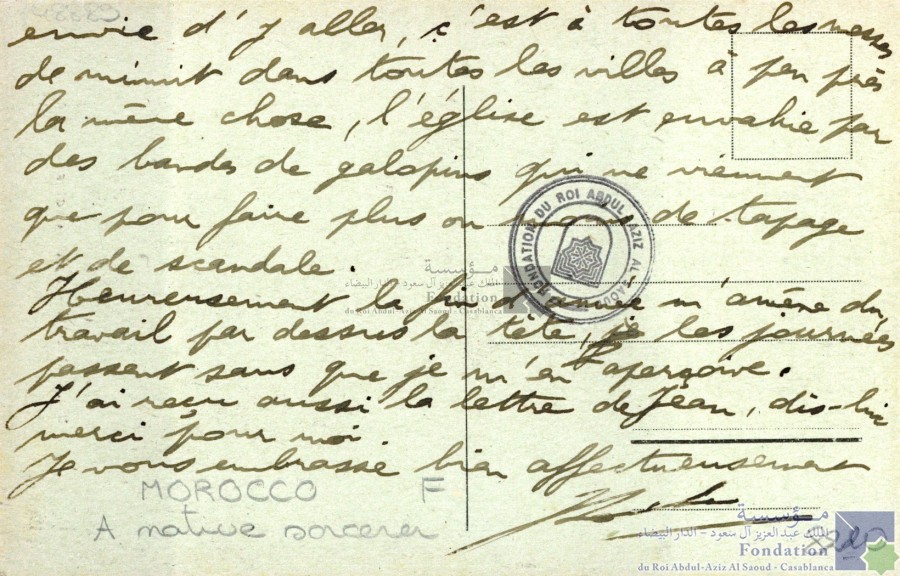 envie d'y aller, c'est à toutes les messes
de minuit dans toutes les villes à peu près
la même chose, l'église est envahie par
des bandes de galopins qui ne viennent
que pour faire plus ou moins de tapage
et de scandale.
Heureusement la fin d'année m'amène du
travail par dessus la tête, je les journées
passent sans que je m'en aperçoive.
J'ai reçu aussi la lettre de Jean, dis-lui
merci pour moi
Je vous embrasse bien affectueusement
MOROCCO F
A native sorcerer
FONDATION DU ROI ABDUL AZIZ AL SAOUD
مؤسسة
الملك عبد العزيز آل سعود - الدار البيضاء
Fondation
du Roi Abdul-Aziz Al Saoud - Casablanca
مؤسسة
الملك عبد العزيز آل سعود - الدار البيضاء
Fondation
du Roi Abdul-Aziz Al Saoud - Casablanca